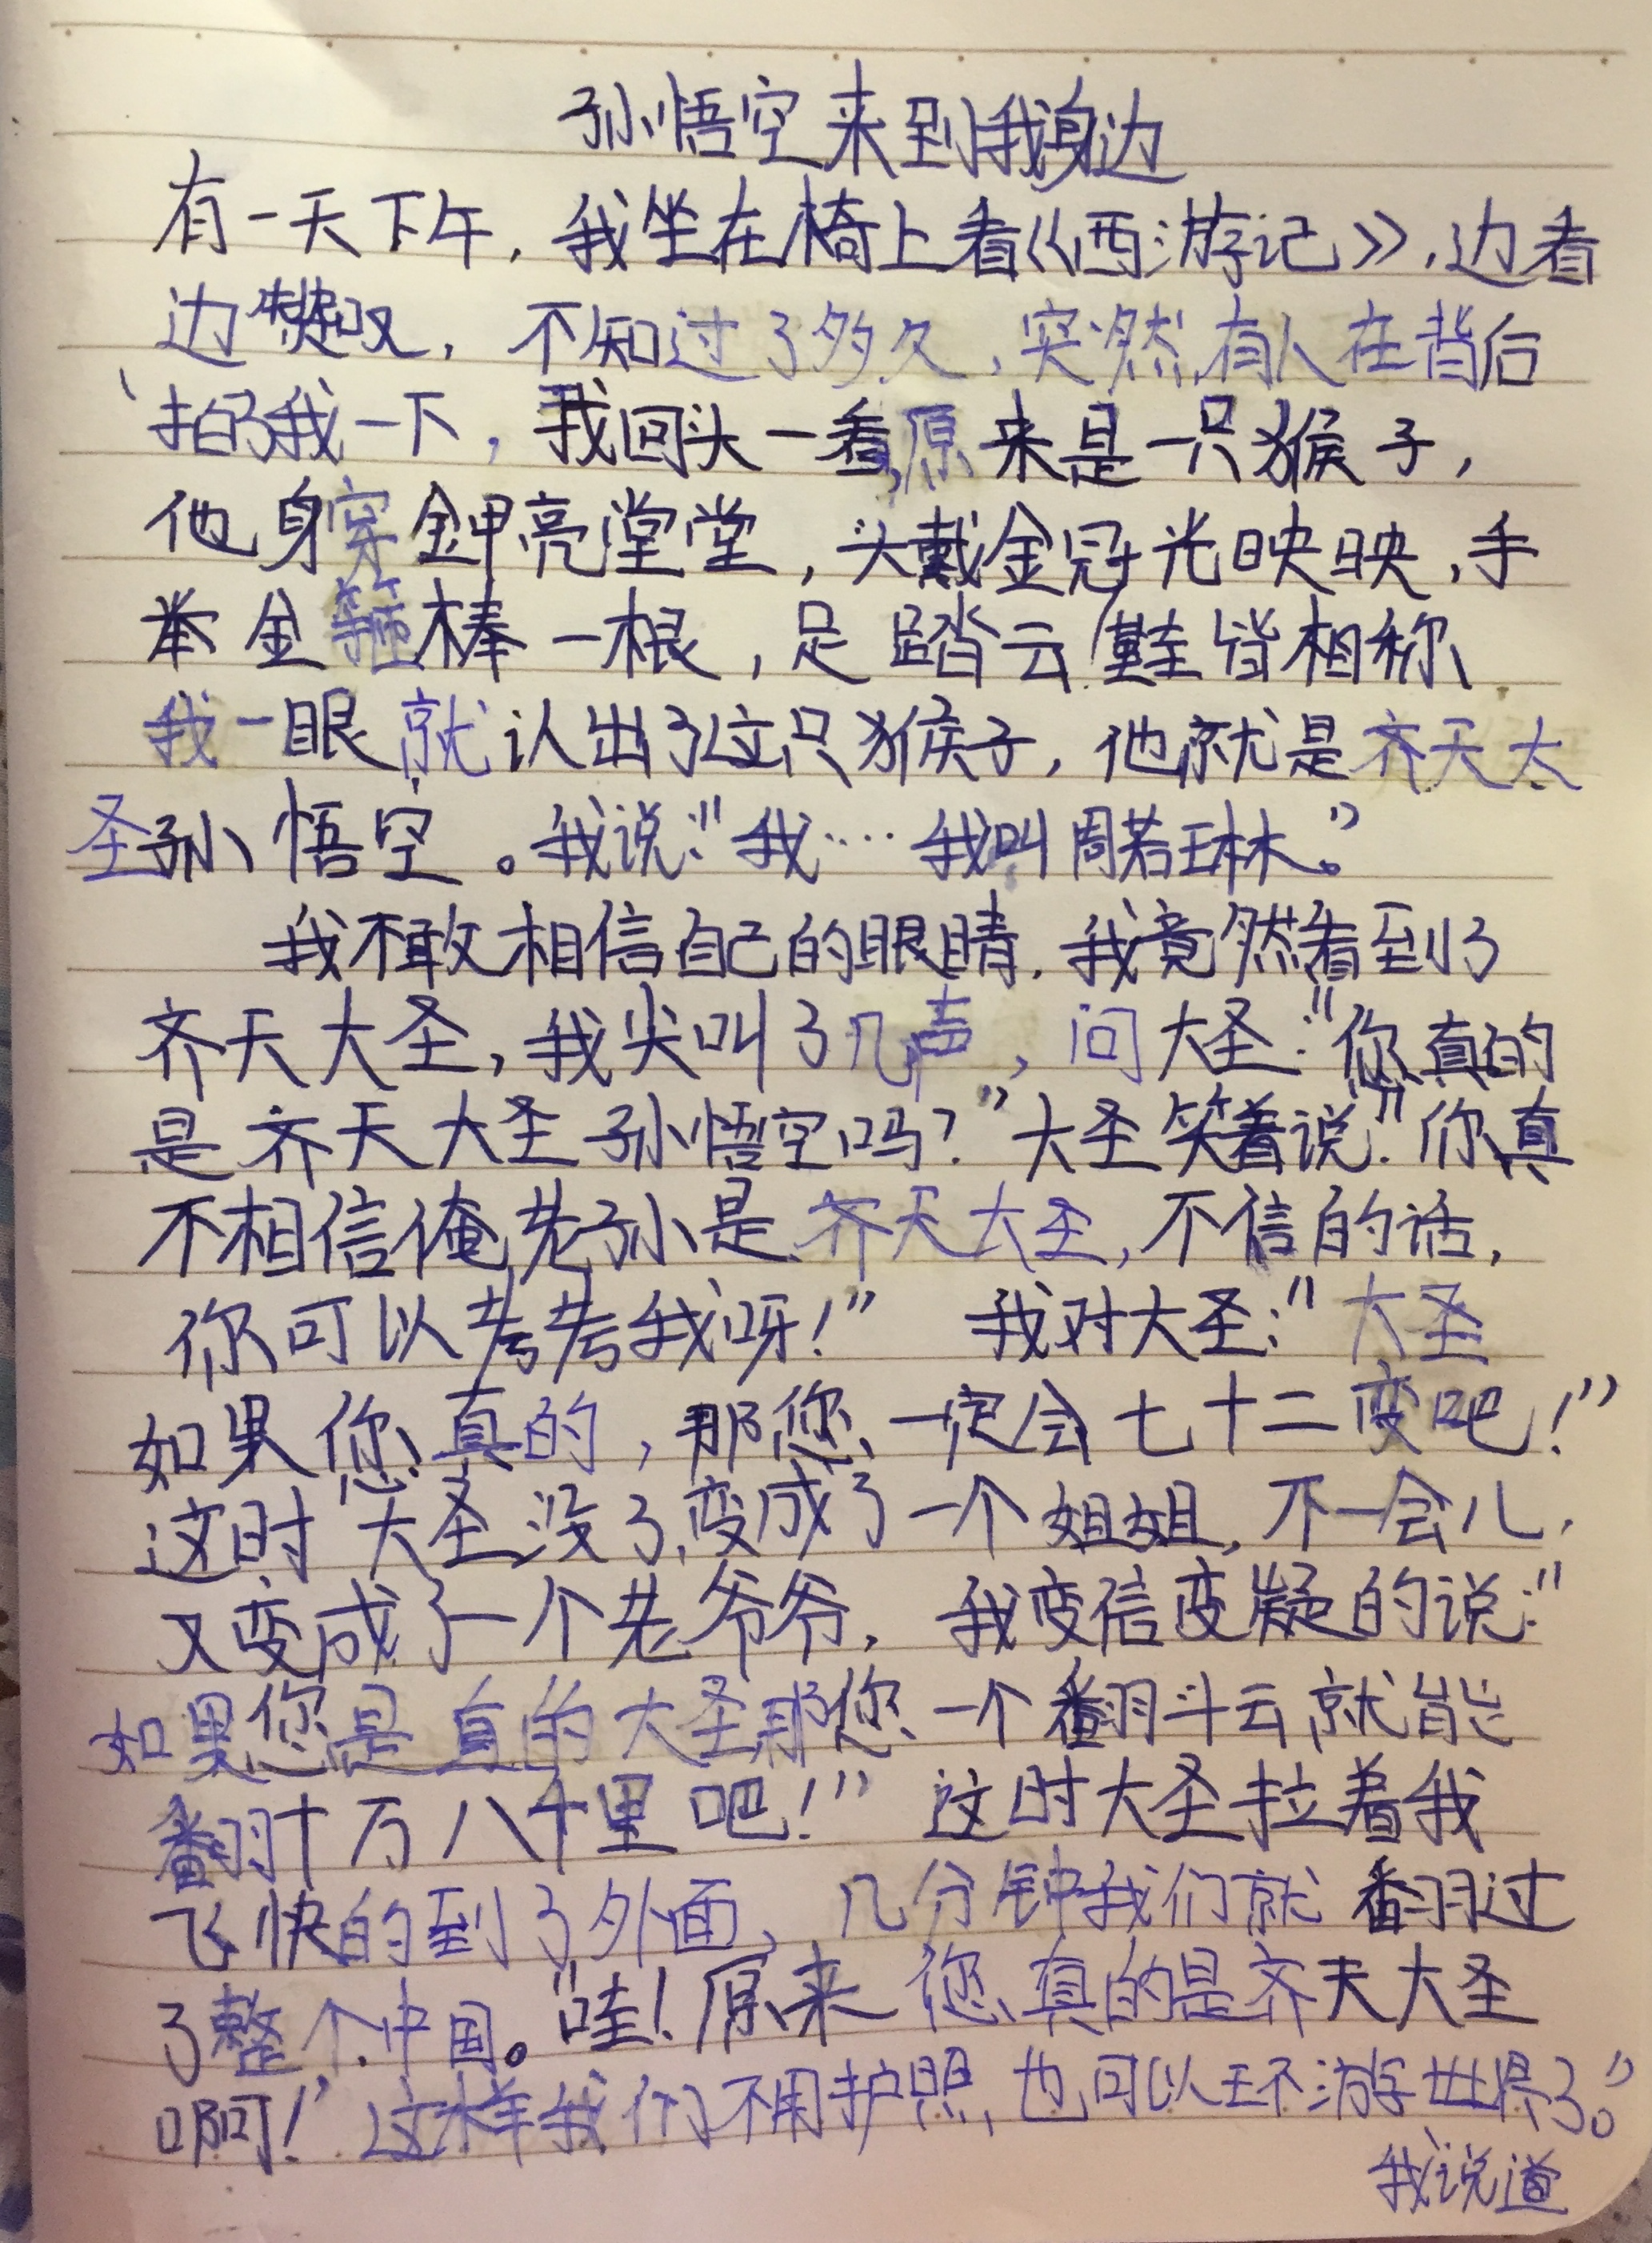 孙悟空来到我身边
有一天下午，我坐在椅上看《西游记》，边看
边赞叹，不知过了多久，突然有人在背后
拍了我一下，我回头一看，原来是一只猴子，
他身穿金甲亮堂堂，头戴金冠光映映，手
举金箍棒一根，足踏云鞋皆相称、
我一眼就认出了这只猴子，他就是齐天大
圣孙悟空。我说：“我……我叫周若琳。”
我不敢相信自己的眼睛，我竟然看到了
齐天大圣，我尖叫了几声，问大圣：“你真的
是齐天大圣孙悟空吗？”大圣笑着说：“你真
不相信俺老孙是齐天大圣，不信的话，
你可以考考我呀！” 我对大圣：“大圣
如果您真的，那您一定会七十二变吧！”
这时大圣没了，变成了一个姐姐，不一会儿，
又变成了一个老爷爷，我变信变疑的说：“
如果您是真的大圣那您一个翻斗云就能
翻十万八千里吧！” 这时大圣拉着我
飞快的到了外面、几分钟我们就翻过
了整个中国。“哇！原来您真的是齐天大圣
啊！这样我们不用护照，也可以环游世界了。”
我说道